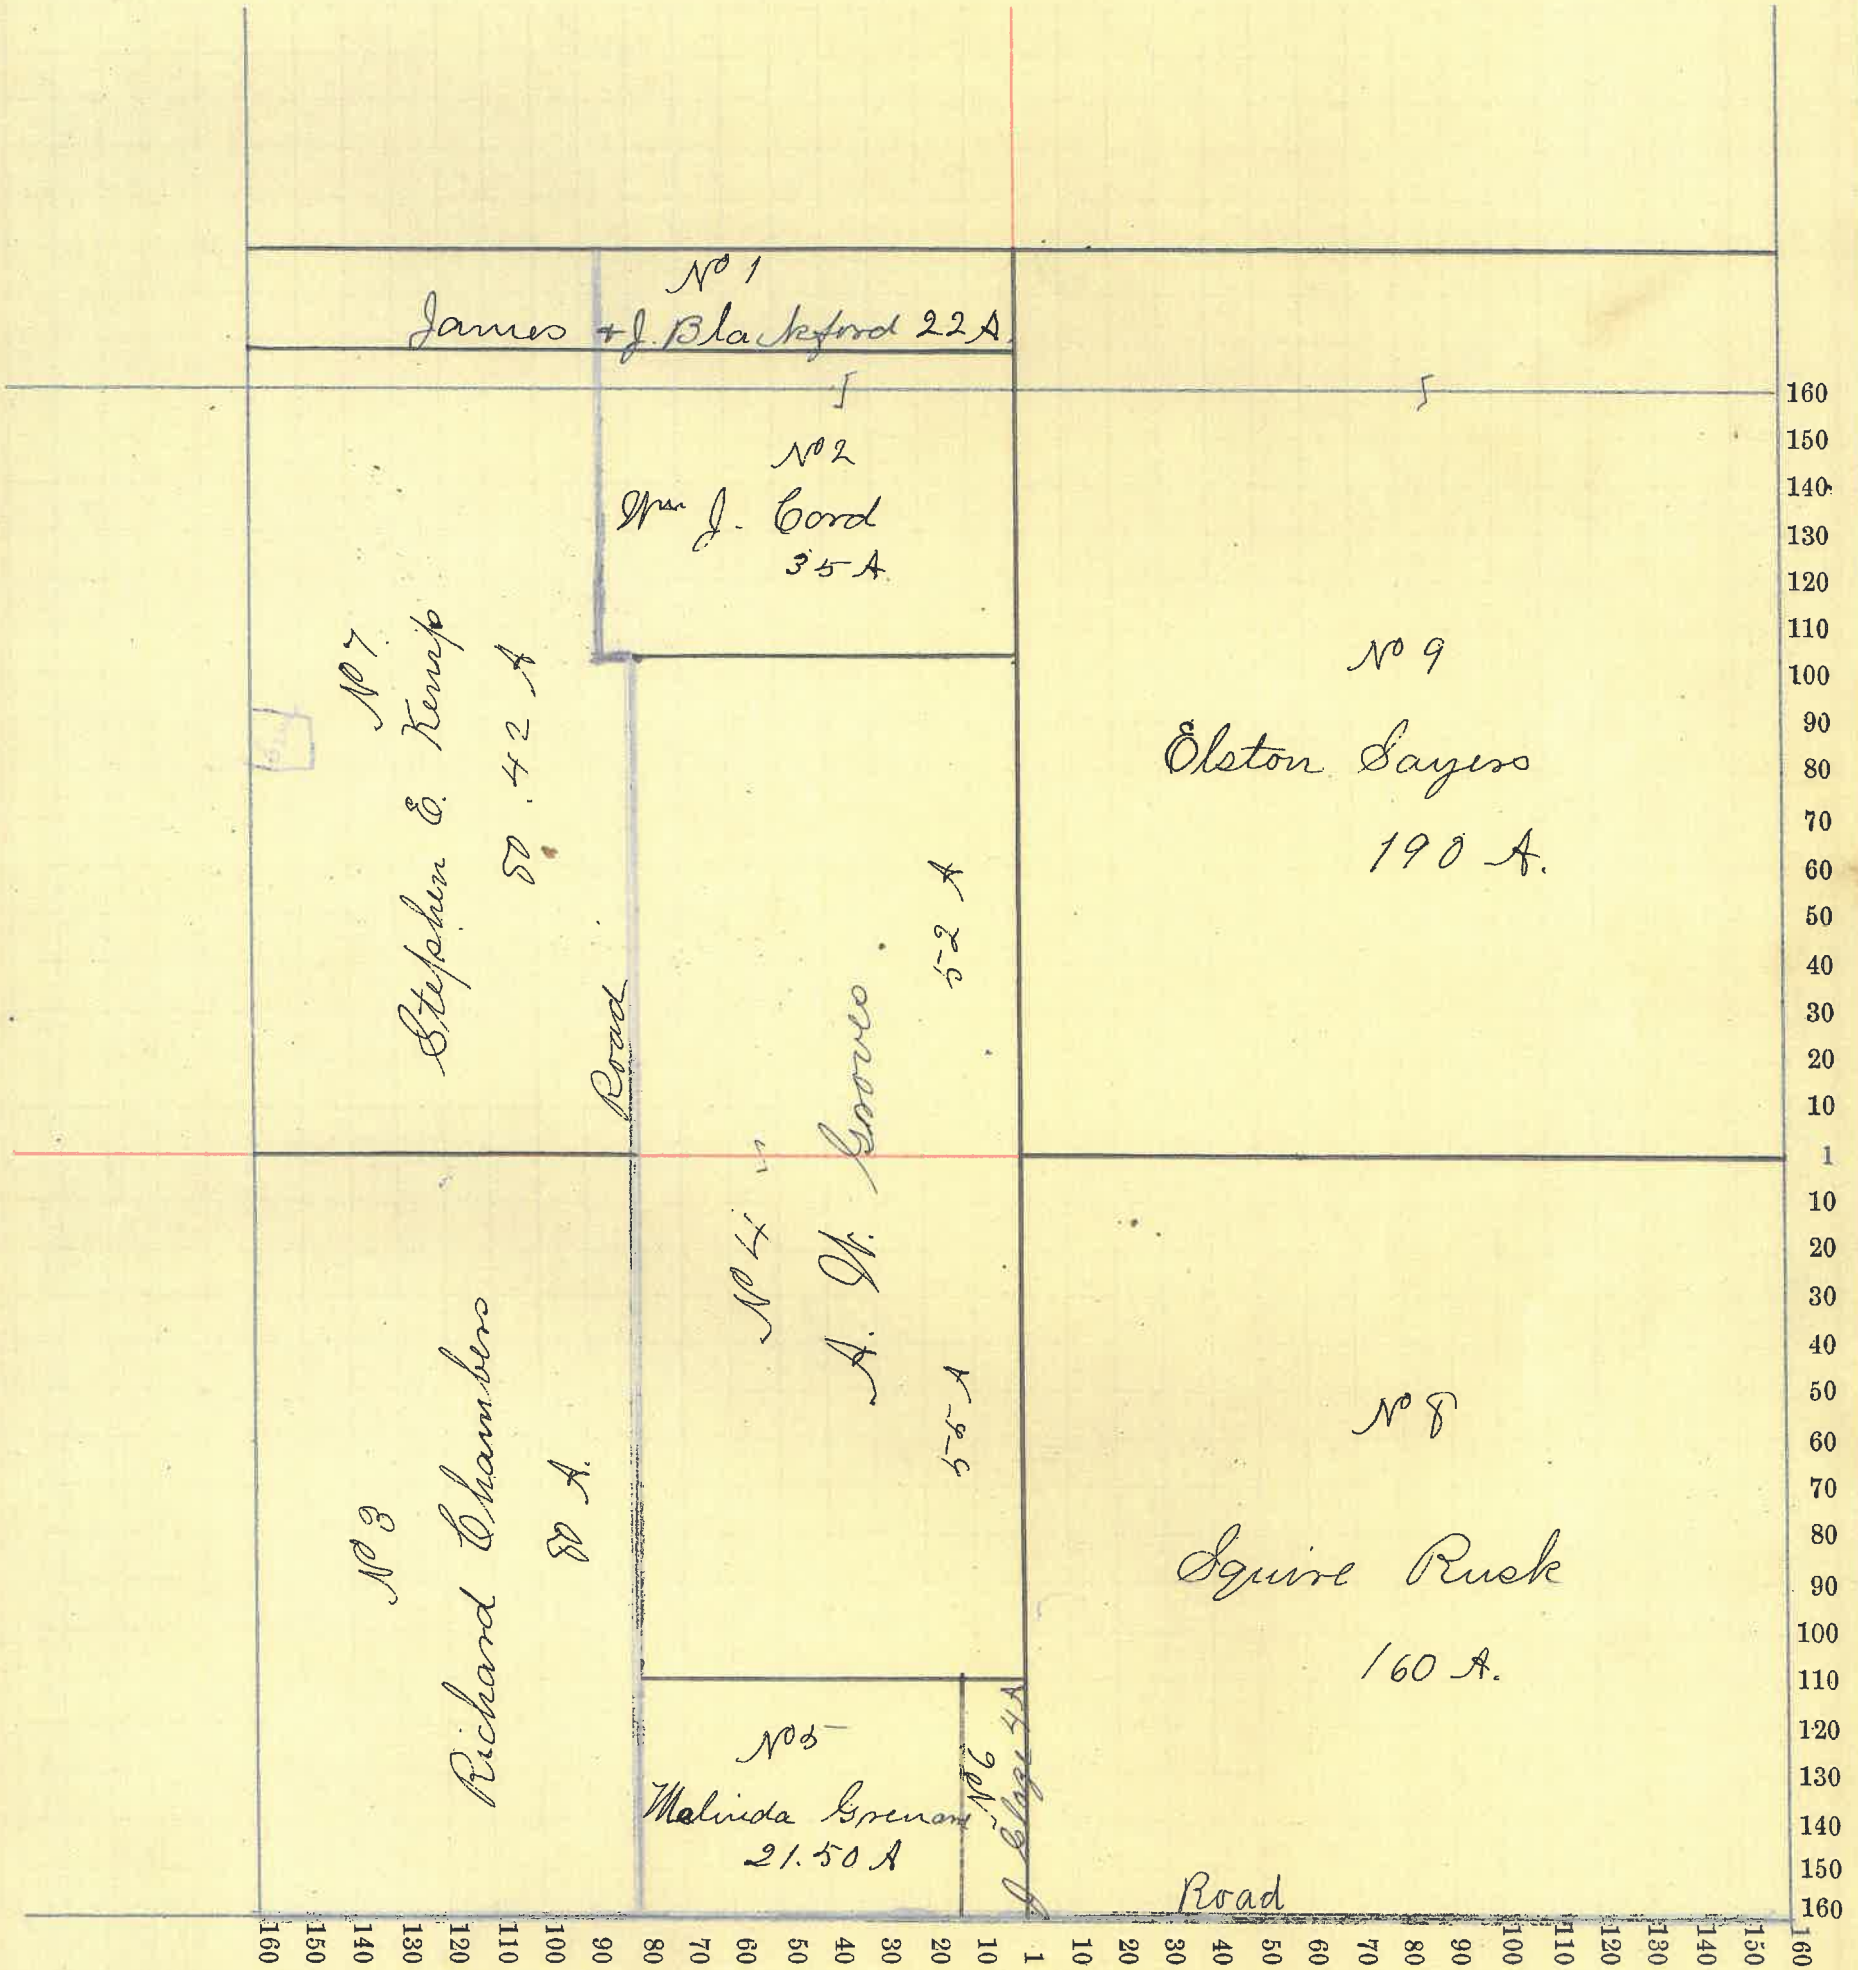 No 1
James + J. Blackford 22 A.
No 2
Wm J. Cord
35 A.
No 7.
Stephen E. Kemp
80.42 A
Road
No 9
Elston Sayers
190 A.
No 4
A. W. Groves
52 A
55 A
No 3
Richard Chambers
80 A.
No 8
Squire Rusk
160 A.
No 5
Malinda
21.50 A
No 6
J 4 A
Road
160
150
140
130
120
110
100
90
80
70
60
50
40
30
20
10
1
10
20
30
40
50
60
70
80
90
100
110
120
130
140
150
160
160 150 140 130 120 110 100 90 80 70 60 50 40 30 20 10 1 10 20 30 40 50 60 70 80 90 100 110 120 130 140 150 160